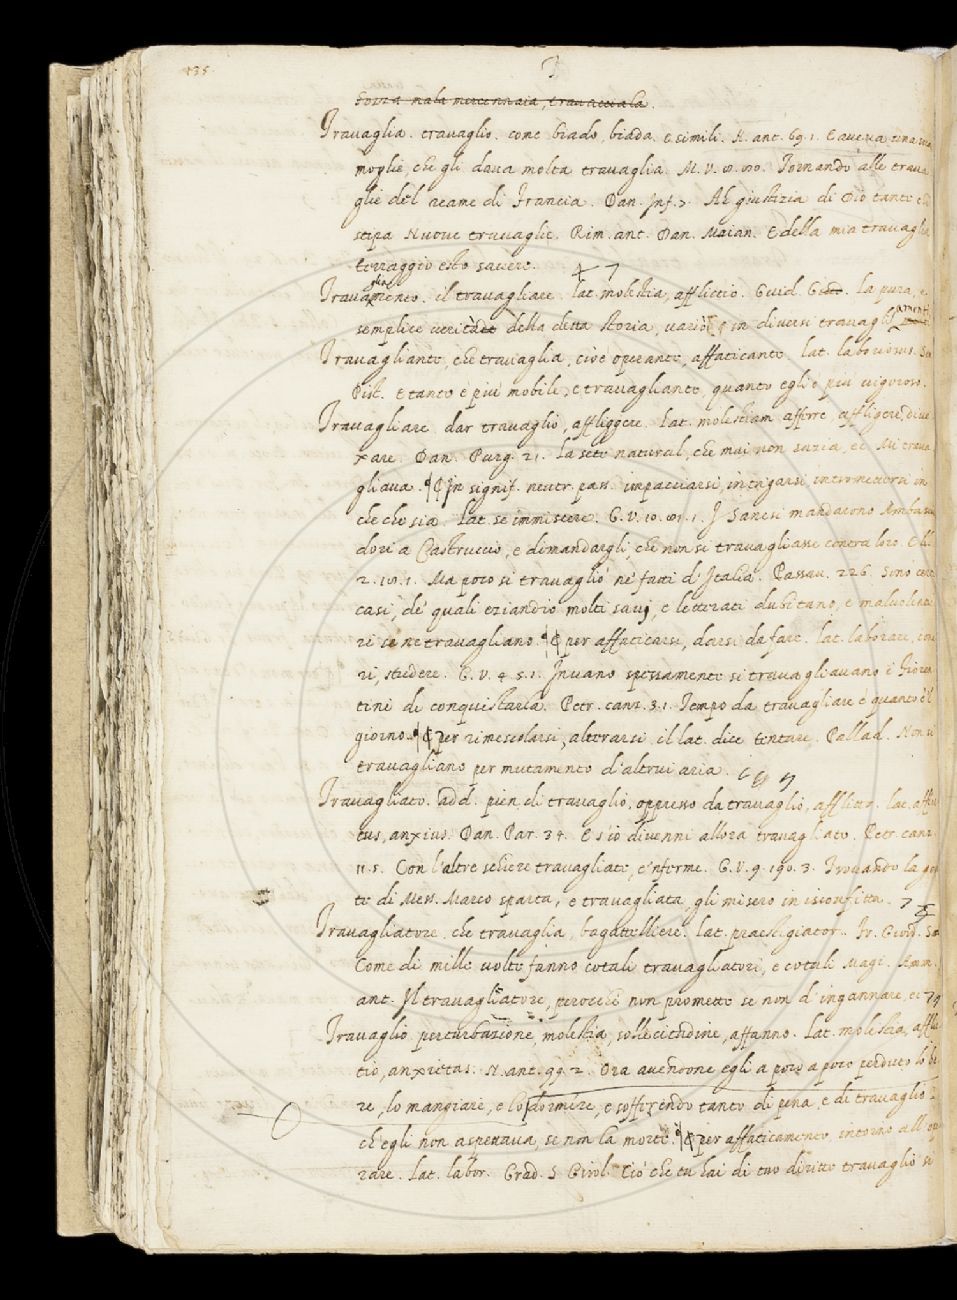 135.
T
Travaglia. travaglio. come biado, biada. e simili. N. ant. 69. 1. E aveva una sua
moglie, che gli dava molta travaglia. M. V. Tornando alle trava
glie del reame di Francia. Dan. Inf. 7. Ah giustizia di Dio tante chi
stipa Nuove travaglie. Rim. ant. Dan. Maian. E della mia travaglia
terraggio esto savere.
Travagliamento. il travagliare. lat. molestia, afflictio. Guid. G. la pura, e
semplice verità della detta storia, variò in diversi travagliamenti
Travagliante, che travaglia, cioè operante, affaticante. lat. laboriosus. Sen
Pist. E tanto è più mobile, e travagliante, quanto egli è più vigoroso.
Travagliare. dar travaglio, affliggere. Lat. molestiam afferre affligere, dive
xare. Dan. Purg. 21. La sete natural, che mai non sazia, ec Mi trava
gliava. ¶ In signif. neutr. pass. impacciarsi, intrigarsi, intromettersi in
che che sia. Lat. se immiscere. G. V. 10. I Sanesi mandarono Ambascia
dori a Castruccio, e dimandargli, che non si travagliasse contra loro. E ll.
2. Ma poco si travagliò ne' fatti d'Italia. Passav. 226. Sono certi
casi, de' quali eziandio molti savj, e letterati dubitano, e malvolentie
ri se ne travagliano. ¶ per affaticarsi, darsi da fare. lat. laborare, cona
ri, studere. G. V. 4. 5. 1. Invano spessamente si travagliavano i Fioren
tini di conquistarla. Petr. canz. 3. 1. Tempo da travagliare è quanto è 'l
giorno. ¶ per rimescolarsi, alterarsi. il lat. dice tentare. Pallad. Non si
travagliano per mutamento d'altrui aria.
Travagliato. add. pien di travaglio, oppresso da travaglio, afflitto. lat. afflic
tus, anxius. Dan. Par. 34. E s'io divenni allora travagliato. Petr. canz.
11. 5. Con l'altre schiere travagliate, e 'nferme. G. V. 9. 190. 3. Trovando la gen
te di Mess. Marco sparta, e travagliata, gli misero in isconfitta.
Travagliatore. che travaglia, bagattelliere. lat. praestigiator. Fr. Giord. Sal
Come di mille volte fanno cotali travagliatori, e cotali Magi.
ant. Il travagliatore, perocchè non promette se non d'ingannare, ec
Travaglio. perturbazione, molestia, sollecitudine, affanno. Lat. molestia, afflic
tio, anxietas. N. ant. 99. 2. Ora avendone egli a poco a poco perduto lo be
re, lo mangiare, e lo dormire, e sofferendo tanto di pena, e di travaglio
ch'egli non aspettava, se non la morte. ¶ per affaticamento, intorno all' ope
rare. Lat. labor. Grad. S. Girol. Ciò che tu hai di tuo diritto travaglio si